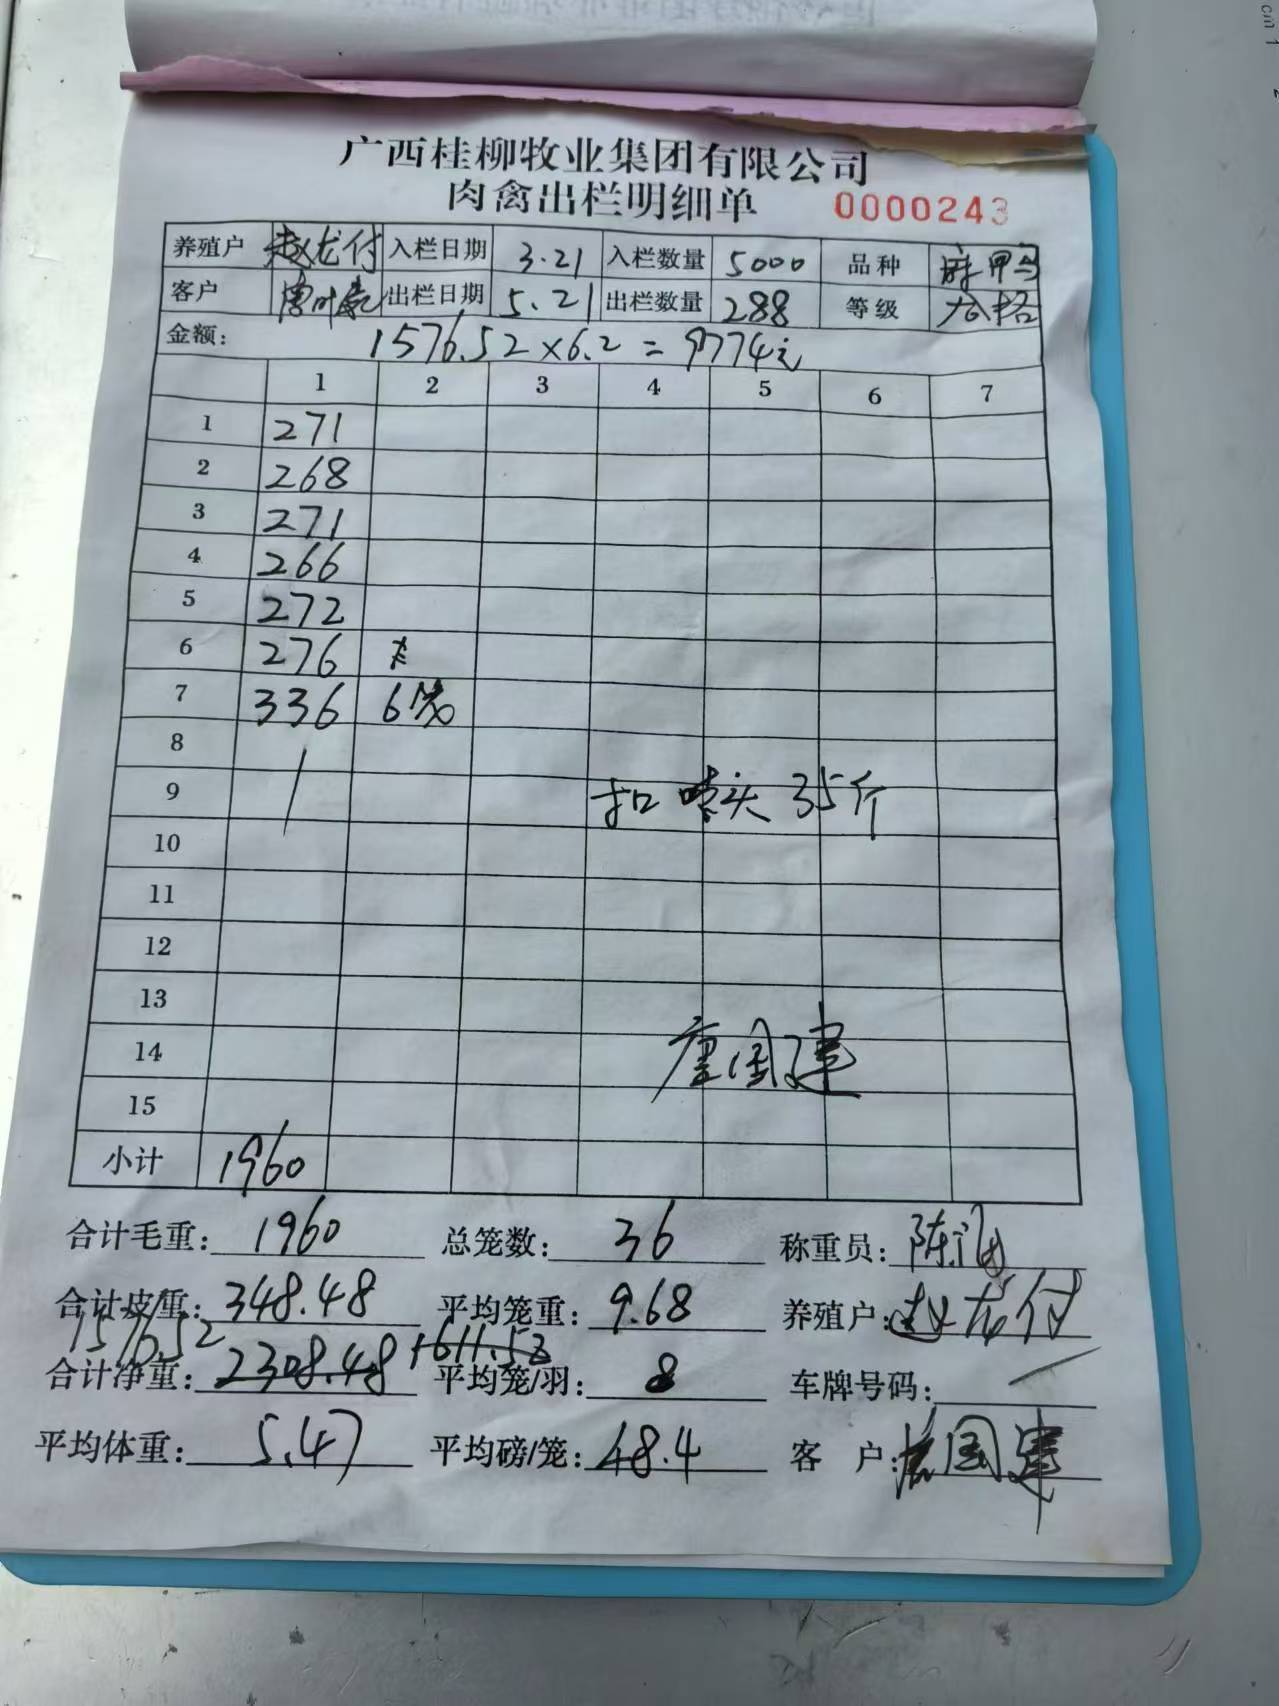 广西桂柳牧业集团有限公司
肉禽出栏明细单 0000243
养殖户 赵龙付 入栏日期 3.21 入栏数量 5000 品种 麻甲鸟
客户 出栏日期 5.21 出栏数量 288 等级 合格
金额： 1576.52×6.2=9774元
1 2 3 4 5 6 7
1 271
2 268
3 271
4 266
5 272
6 276
7 336 6筐
8
9 扣 头 35斤
10
11
12
13
14 唐国建
15
小计 1960
合计毛重： 1960 总笼数： 36 称重员：
合计皮重： 348.48 平均笼重： 9.68 养殖户： 赵龙付
1576.52 1611.52
合计净重： 2308.48 平均笼/羽： 8 车牌号码： 一
平均体重： 5.47 平均磅/笼： 48.4 客 户： 唐国建